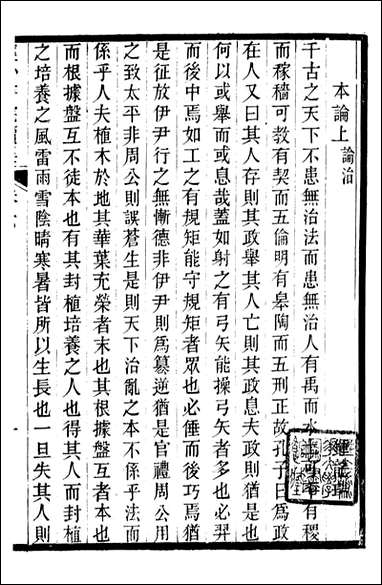 本論上論治
千古之天下不患無治法而患無治人有禹而水土可平有稷
而稼穡可教有契而五倫明有皋陶而五刑正故孔子曰為政
在人又曰其人存則其政舉其人亡則其政息夫政則猶是也
何以或舉而或息哉蓋如射之有弓矢能操弓矢者多也必羿
而後中焉如工之有規矩能守規矩者眾也必倕而後巧焉猶
是征放伊尹行之無慚德非伊尹則為篡逆猶是官禮周公用
之致太平非周公則誤蒼生是則天下治亂之本不係乎法而
係乎人夫植木於地其華葉充榮者末也其根據盤互者本也
而根據盤互不徒本也有其封植培養之人也得其人而封植
之培養之風雷雨雪陰晴寒暑皆所以生長也一旦失其人則